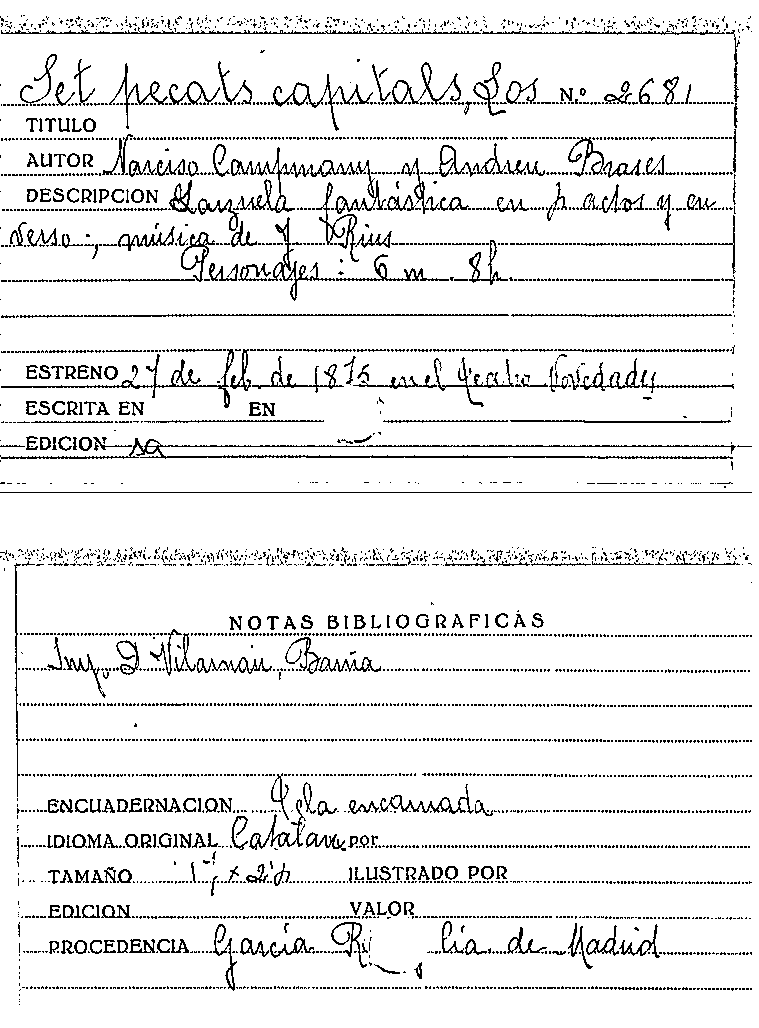 Set pecats capitals, Los N.º 2681
TITULO
AUTOR Narciso Campmany y Andreu Brases
DESCRIPCION Zarzuela fantástica en actos y en
verso; música de J Rius
Personajes: 6 m. 8h.
ESTRENO 27 de feb. de 1875 en el Teatro Novedades
ESCRITA EN EN
EDICION sa
NOTAS BIBLIOGRAFICAS
Imp. D Vilarnau, Barna
ENCUADERNACION Tela encarnada
IDIOMA ORIGINAL Catalan por
TAMAÑO ILUSTRADO POR
EDICION VALOR
PROCEDENCIA García cia de Madrid